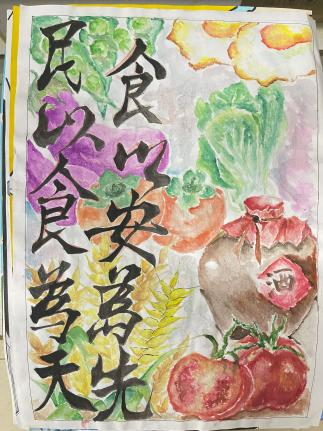 民以食為天
食以安為先
酒